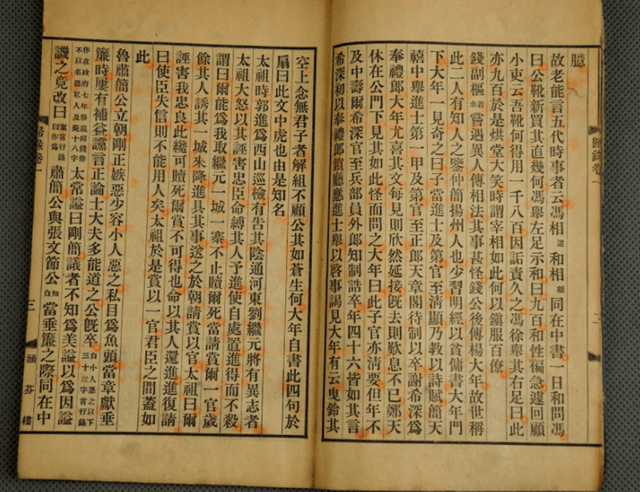 臆
故老能言五代時事者云馮相道和相凝同在中書一日和問馮
曰公靴新買其直幾何馮舉左足示和曰九百和性褊急遽回顧
小吏云吾靴何得用一千八百因詬責久之馮徐舉其右足曰此
亦九百於是烘堂大笑時謂宰相如此何以鎮服百僚
錢副樞若水嘗遇異人傳相法其事甚怪錢公後傳楊大年故世稱
此二人有知人之鑒仲簡揚州人也少習明經以貧傭書大年門
下大年一見奇之曰子當進士及第官至清顯乃教以詩賦簡天
禧中舉進士第一甲及第官至正郎天章閣待制以卒謝希深爲
奉禮郎大年尤喜其文每見則欣然延接既去則歎息不已鄭天
休在公門下見其如此怪而問之大年曰此子官亦清要但年不
及中壽爾希深官至兵部員外郎知制誥卒年四十六皆如其言
希深初以奉禮郎鎖廳應進士舉以啓事謁見大年有云曳鈴其
歸錄卷一
二
空上念無君子者解組不顧公其如蒼生何大年自書此四句於
扇曰此文中虎也由是知名
太祖時郭進爲西山巡檢有告其陰通河東劉繼元將有異志者
太祖大怒以其誣害忠臣命縛其人予進使自處置進得而不殺
謂曰爾能爲我取繼元一城一寨不止贖爾死當請賞爾一官歲
餘其人誘其一城來降進具其事送之於朝請賞以官太祖曰
誣害我忠良此纔可贖死爾賞不可得也命以其人還進進復請
曰使臣失信則不能用人矣太祖於是賞以一官君臣之間蓋如
此
魯肅簡公立朝剛正嫉惡少容小人惡之私目爲魚頭當章獻垂
簾時屢有補益讜言正論士大夫多能道之公既卒
太常謚曰剛簡議者不知爲美謚以爲因謚
譏之竟改曰肅簡公與張文節公知白當垂簾之際同在中
三
涵芬樓